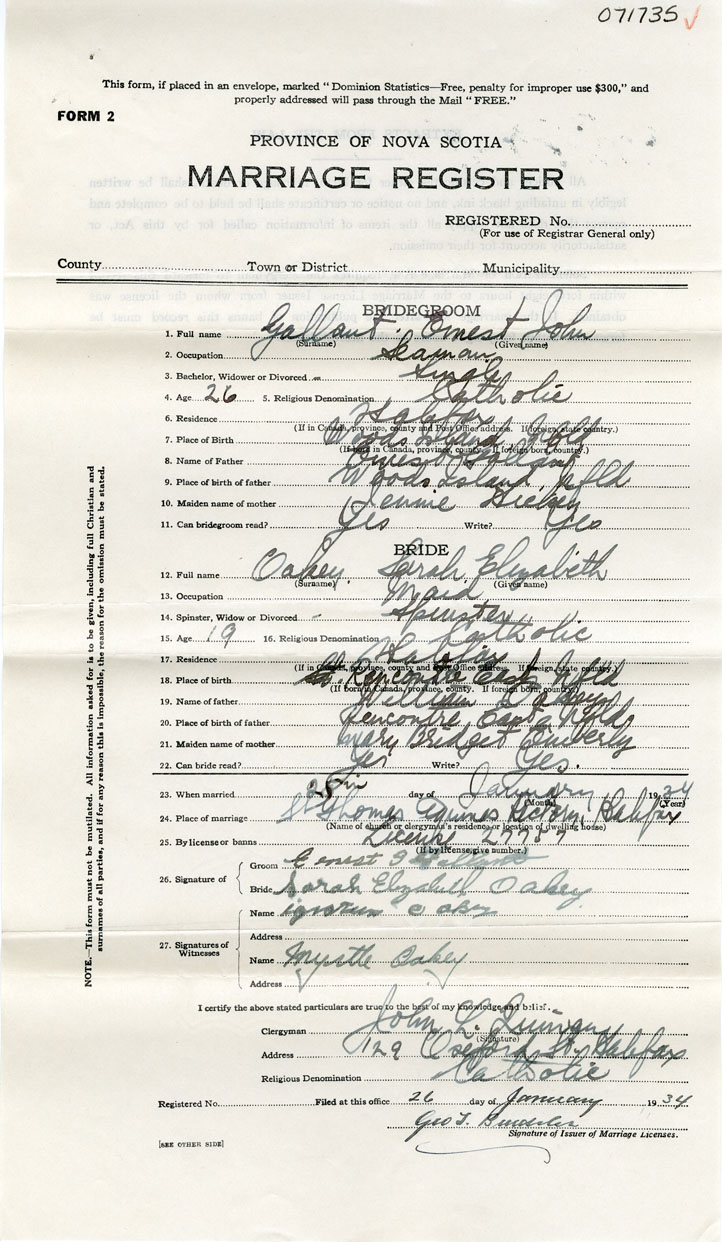 071735 ✓
This form, if placed in an envelope, marked "Dominion Statistics—Free, penalty for improper use $300," and
properly addressed will pass through the Mail "FREE."
FORM 2
PROVINCE OF NOVA SCOTIA
MARRIAGE REGISTER
REGISTERED No.
(For use of Registrar General only)
County Town or District Municipality
BRIDEGROOM
1. Full name Gallant. Ernest John
(Surname) (Given name)
2. Occupation Seaman
3. Bachelor, Widower or Divorced Single
4. Age 26 5. Religious Denomination Catholic
6. Residence Halifax
(If in Canada, province, county and Post Office address. If foreign, state country.)
7. Place of Birth Woods Island Nfld
(If born in Canada, province, county. If foreign born, country.)
8. Name of Father Ernest Gallant
9. Place of birth of father Woods Island, Nfld
10. Maiden name of mother Jennie
11. Can bridegroom read? Yes Write? Yes
BRIDE
12. Full name Oakey. Sarah Elizabeth
(Surname) (Given name)
13. Occupation Maid
14. Spinster, Widow or Divorced Spinster
15. Age 19 16. Religious Denomination Catholic
17. Residence Halifax
(If in Canada, province, county and Post Office address. If foreign, state country.)
18. Place of birth Rencontre East Nfld
(If born in Canada, province, county. If foreign born, country.)
19. Name of father William Oakey
20. Place of birth of father Rencontre East Nfld
21. Maiden name of mother Mary Bridget
22. Can bride read? Yes Write? Yes.
23. When married day of January 1934
(Month) (Year)
24. Place of marriage St Thomas Aquinas Rectory, Halifax
(Name of church or clergyman's residence or location of dwelling house)
25. By license or banns License
(If by license, give number.)
26. Signature of Groom Ernest J Gallant
Bride Sarah Elizabeth Oakey
27. Signatures of Witnesses Name Oakey
Address
Name Myrtle Oakey
Address
I certify the above stated particulars are true to the best of my knowledge and belief.
Clergyman John L. Quinan
(Signature)
Address 129 Oxford St, Halifax
Religious Denomination Catholic
Registered No. Filed at this office 26 day of January 1934
Geo T.
Signature of Issuer of Marriage Licenses.
[SEE OTHER SIDE]
NOTE.—This form must not be mutilated. All information asked for is to be given, including full Christian and
surnames of all parties, and if for any reason this is impossible, the reason for the omission must be stated.